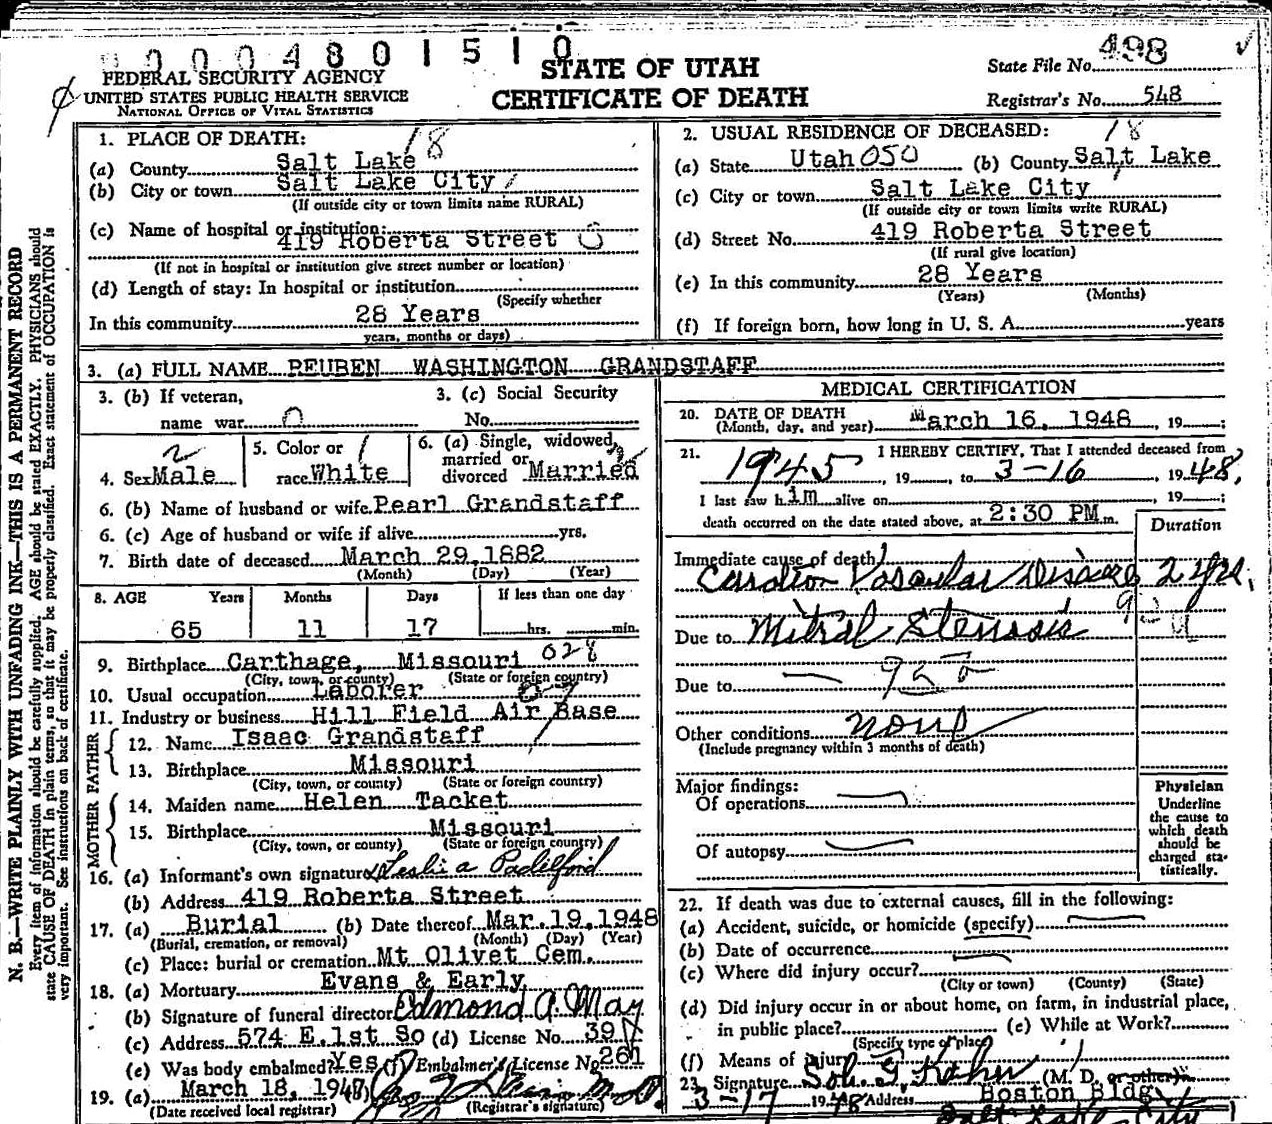 0004801510
498
FEDERAL SECURITY AGENCY
UNITED STATES PUBLIC HEALTH SERVICE
NATIONAL OFFICE OF VITAL STATISTICS
STATE OF UTAH
CERTIFICATE OF DEATH
State File No.
Registrar's No. 548
N. B.—WRITE PLAINLY WITH UNFADING INK—THIS IS A PERMANENT RECORD
Every item of information should be carefully supplied. AGE should be stated EXACTLY. PHYSICIANS should
state CAUSE OF DEATH in plain terms, so that it may be properly classified. Exact statement of OCCUPATION is
very important. See instructions on back of certificate.
1. PLACE OF DEATH: 18
(a) County Salt Lake
(b) City or town Salt Lake City
(If outside city or town limits name RURAL)
(c) Name of hospital or institution:
419 Roberta Street
(If not in hospital or institution give street number or location)
(d) Length of stay: In hospital or institution
(Specify whether
In this community 28 Years
years, months or days)
2. USUAL RESIDENCE OF DECEASED: 18
(a) State Utah 050 (b) County Salt Lake
(c) City or town Salt Lake City
(If outside city or town limits write RURAL)
(d) Street No. 419 Roberta Street
(If rural give location)
(e) In this community 28 Years
(Years) (Months)
(f) If foreign born, how long in U. S. A. years
3. (a) FULL NAME REUBEN WASHINGTON GRANDSTAFF
3. (b) If veteran, 3. (c) Social Security
name war 0 No.
2
4. Sex Male
5. Color or 1
race White
6. (a) Single, widowed,
married or
divorced Married
6. (b) Name of husband or wife Pearl Grandstaff
6. (c) Age of husband or wife if alive yrs.
7. Birth date of deceased March 29, 1882
(Month) (Day) (Year)
8. AGE Years Months Days If less than one day
65 11 17 hrs. min.
9. Birthplace Carthage, Missouri 028
(City, town, or county) (State or foreign country)
10. Usual occupation Laborer
11. Industry or business Hill Field Air Base
FATHER
12. Name Isaac Grandstaff
13. Birthplace Missouri
(City, town, or county) (State or foreign country)
MOTHER
14. Maiden name Helen Tacket
15. Birthplace Missouri
(City, town, or county) (State or foreign country)
16. (a) Informant's own signature Leslie a Padelford
(b) Address 419 Roberta Street
17. (a) Burial (b) Date thereof Mar. 19, 1948
(Burial, cremation, or removal) (Month) (Day) (Year)
(c) Place: burial or cremation Mt Olivet Cem.
18. (a) Mortuary Evans & Early
(b) Signature of funeral director Edmond A. May
(c) Address 574 E.1st So (d) License No. 39
(e) Was body embalmed? Yes (f) Embalmer's License No. 261
19. (a) March 18, 1948
(Date received local registrar) (Registrar's signature)
MEDICAL CERTIFICATION
20. DATE OF DEATH
(Month, day, and year) March 16, 1948, 19 ;
21. I HEREBY CERTIFY, That I attended deceased from
1945, 19 , to 3-16, 1948,
I last saw him alive on , 19 ;
death occurred on the date stated above, at 2:30 PM m.
Duration
Immediate cause of death
Cardio Vascular Disease 2 yrs.
Due to Mitral Stenosis
Due to
Other conditions none
(Include pregnancy within 3 months of death)
Major findings:
Of operations
Of autopsy
Physician
Underline
the cause to
which death
should be
charged sta-
tistically.
22. If death was due to external causes, fill in the following:
(a) Accident, suicide, or homicide (specify)
(b) Date of occurrence
(c) Where did injury occur?
(City or town) (County) (State)
(d) Did injury occur in or about home, on farm, in industrial place,
in public place? (e) While at Work?
(Specify type of place)
(f) Means of injury
23. Signature Sol. G. Kahn (M. D. or other)
3-17 1948 Address Boston Bldg.
Salt Lake City